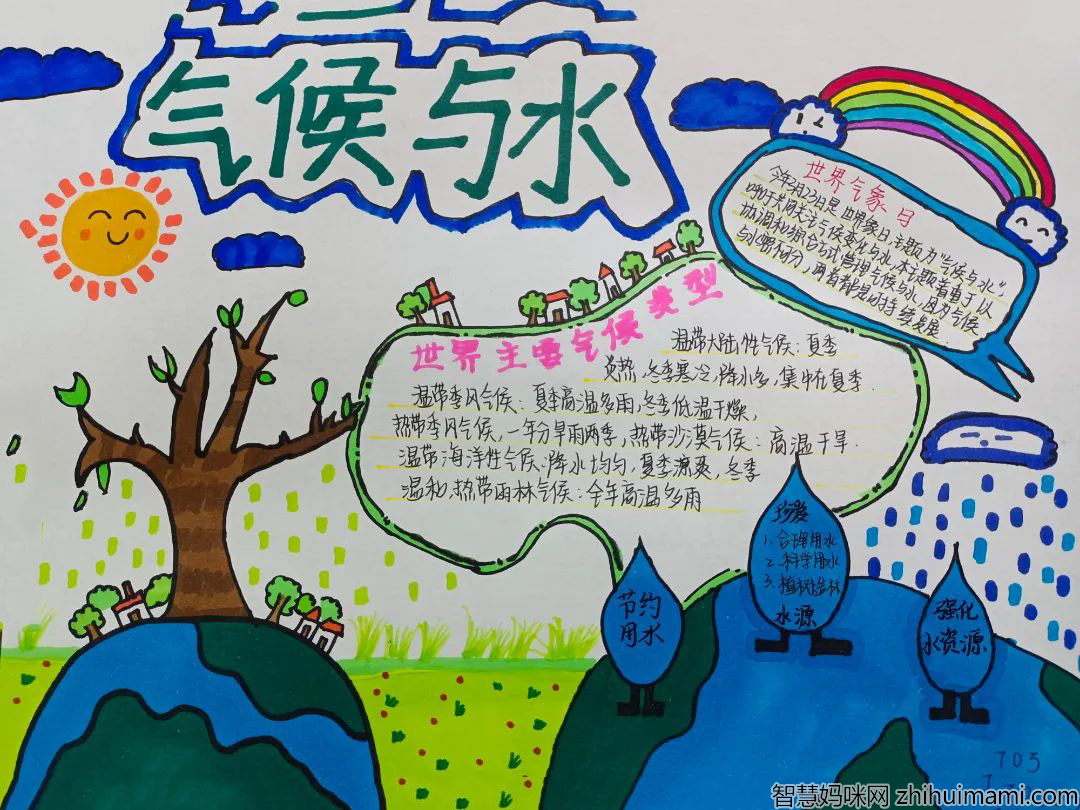 气候与水
世界气象日
今年3月23日是世界象日,主题为"气候与水"
呼吁共同关注气候变化与水,本主题着重于以
协调和综合方式管理气候与水,因为气候
与水密不可分,两者都是可持续发展
世界主要气候类型
温带大陆性气候:夏季
炎热,冬季寒冷,降水少,集中在夏季.
温带季风气候:夏季高温多雨,冬季低温干燥,
热带季风气候,一年分旱雨两季,热带沙漠气候:高温干旱.
温带海洋性气候:降水均匀,夏季凉爽,冬季
温和,热带雨林气候:全年高温多雨
珍爱
1.合理用水
2.科学用水
3.植树造林
水源
节约
用水
强化
水资源
703
智慧妈咪网 zhihuimami.com